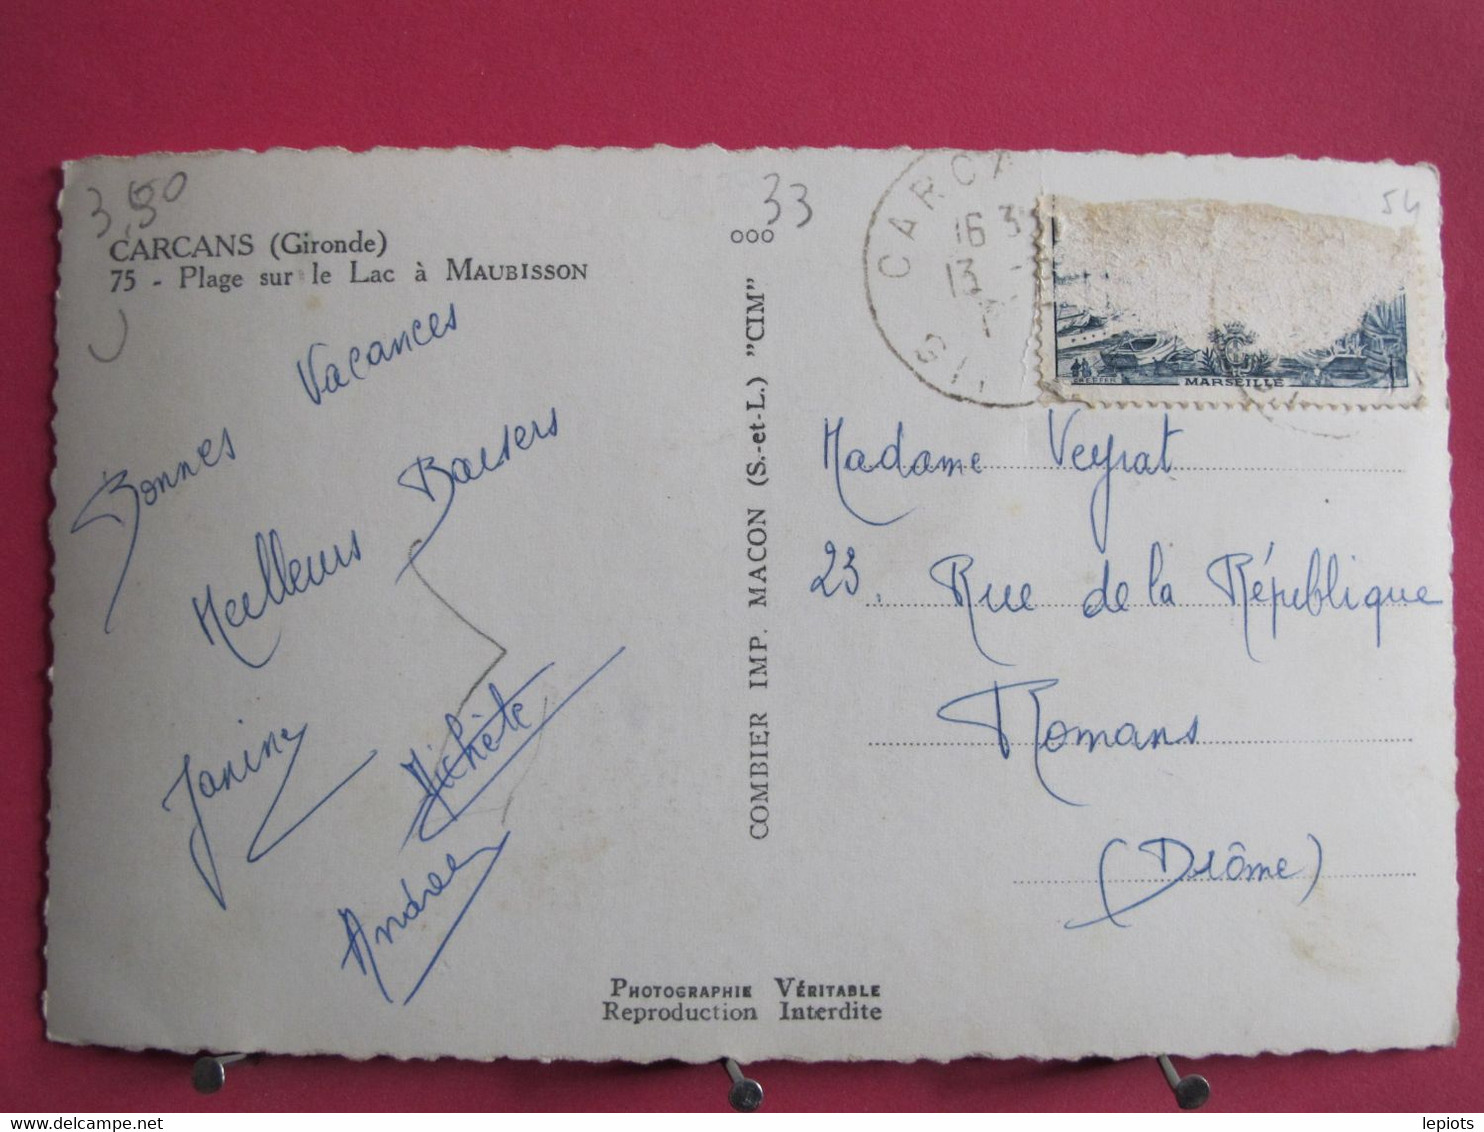 3,50
33
54
CARCANS (Gironde)
75 - Plage sur le Lac à MAUBISSON
ooo
Bonnes Vacances
Meilleurs Baisers
Janine
Michèle
Andrée
COMBIER IMP. MACON (S.-et-L.) "CIM"
CARCA
16 3
13
GI
MARSEILLE
Madame Veyrat
23, Rue de la République
Romans
(Drôme)
PHOTOGRAPHIE VÉRITABLE
Reproduction Interdite
delcampe.net
lepiots